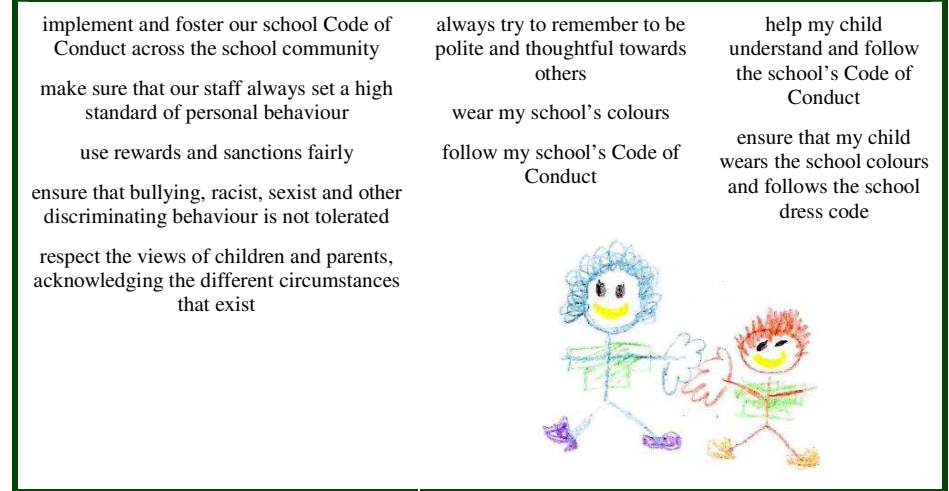 implement and foster our school Code of
Conduct across the school community
make sure that our staff always set a high
standard of personal behaviour
use rewards and sanctions fairly
ensure that bullying, racist, sexist and other
discriminating behaviour is not tolerated
respect the views of children and parents,
acknowledging the different circumstances
that exist
always try to remember to be
polite and thoughtful towards
others
wear my school’s colours
follow my school’s Code of
Conduct
help my child
understand and follow
the school’s Code of
Conduct
ensure that my child
wears the school colours
and follows the school
dress code